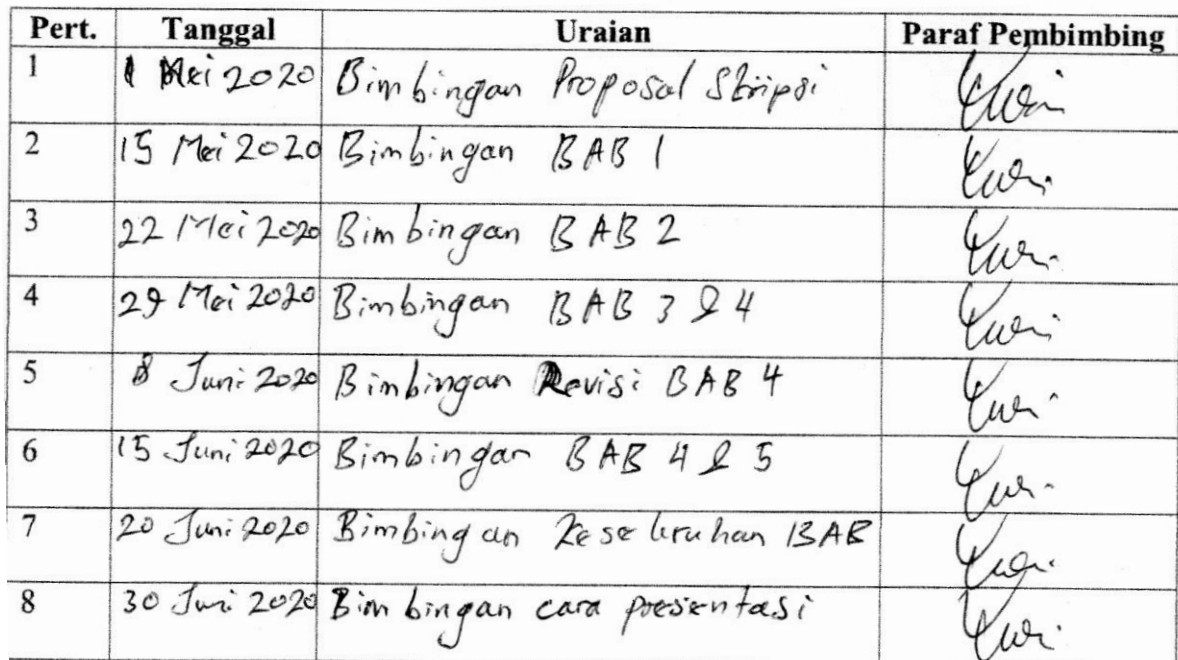 Pert. Tanggal Uraian Paraf Pembimbing
1 1 Mei 2020 Bimbingan Proposal Skripsi
2 15 Mei 2020 Bimbingan BAB 1
3 22 Mei 2020 Bimbingan BAB 2
4 29 Mei 2020 Bimbingan BAB 3 & 4
5 8 Juni 2020 Bimbingan Revisi BAB 4
6 15 Juni 2020 Bimbingan BAB 4 & 5
7 20 Juni 2020 Bimbingan Keseluruhan BAB
8 30 Juni 2020 Bimbingan cara presentasi